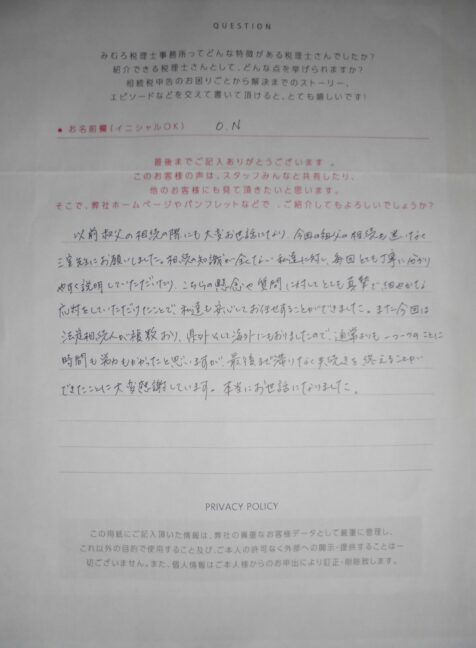 QUESTION
みむろ税理士事務所ってどんな特徴がある税理士さんでしたか?
紹介できる税理士さんとして、どんな点を挙げられますか?
相続税申告のお困りごとから解決までのストーリー、
エピソードなどを交えて書いて頂けると、とても嬉しいです!
● お名前欄(イニシャルOK) O.N
最後までご記入ありがとうございます 。
このお客様の声は、スタッフみんなと共有したり、
他のお客様にも見て頂きたいと思います。
そこで、弊社ホームページやパンフレットなどで 、ご紹介してもよろしいでしょうか?
以前叔父の相続の際にも大変お世話になり、今回の祖父の相続も迷いなく
三室先生にお願いしました。相続の知識が全くない私達に対し、毎回とても丁寧に分かり
やすく説明していただいたり、こちらの懸念や質問に対してとても真摯で
応対をしていただけたことで、私達も安心してお任せすることができました。また今回は
法定相続人が複数おり、県外そして海外にもおりましたので、通常よりも一つ一つのことに
時間も労力もかかったと思いますが、最後まで滞りなく手続きを終えることが
できたことに大変感謝しています。本当にお世話になりました。
PRIVACY POLICY
この用紙にご記入頂いた情報は、弊社の重要なお客様データとして厳重に管理し、
これ以外の目的で使用すること及び、ご本人の許可なく外部への開示・提供することは一
切ございません。また、個人情報はご本人様からのお申出により訂正・削除致します。